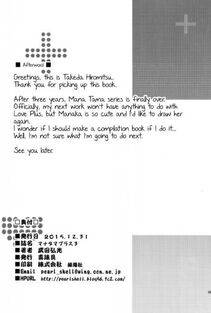 ■ Afterword ■
Greetings, this is Takeda Hiromitsu.
Thank you for picking up this book.
After three years, Mana Tama series is finally over.
Officially, my next work won't have anything to do with
Love Plus, but Manaka is so cute and I'd like to draw her
again.
I wonder if I should make a compilation book if I do it...
Well, I'm not sure what I'm going to do next.
See you later.
□奥付□
■発行日 2014.12.31
■誌名 マナタマプラス3
■著者 武田弘光
■発行 真珠貝
■印刷 株式会社 緑陽社
■Email pearl_shell@wing.ocn.ne.jp
■HPURL http://pearlshell.blog46.fc2.com/